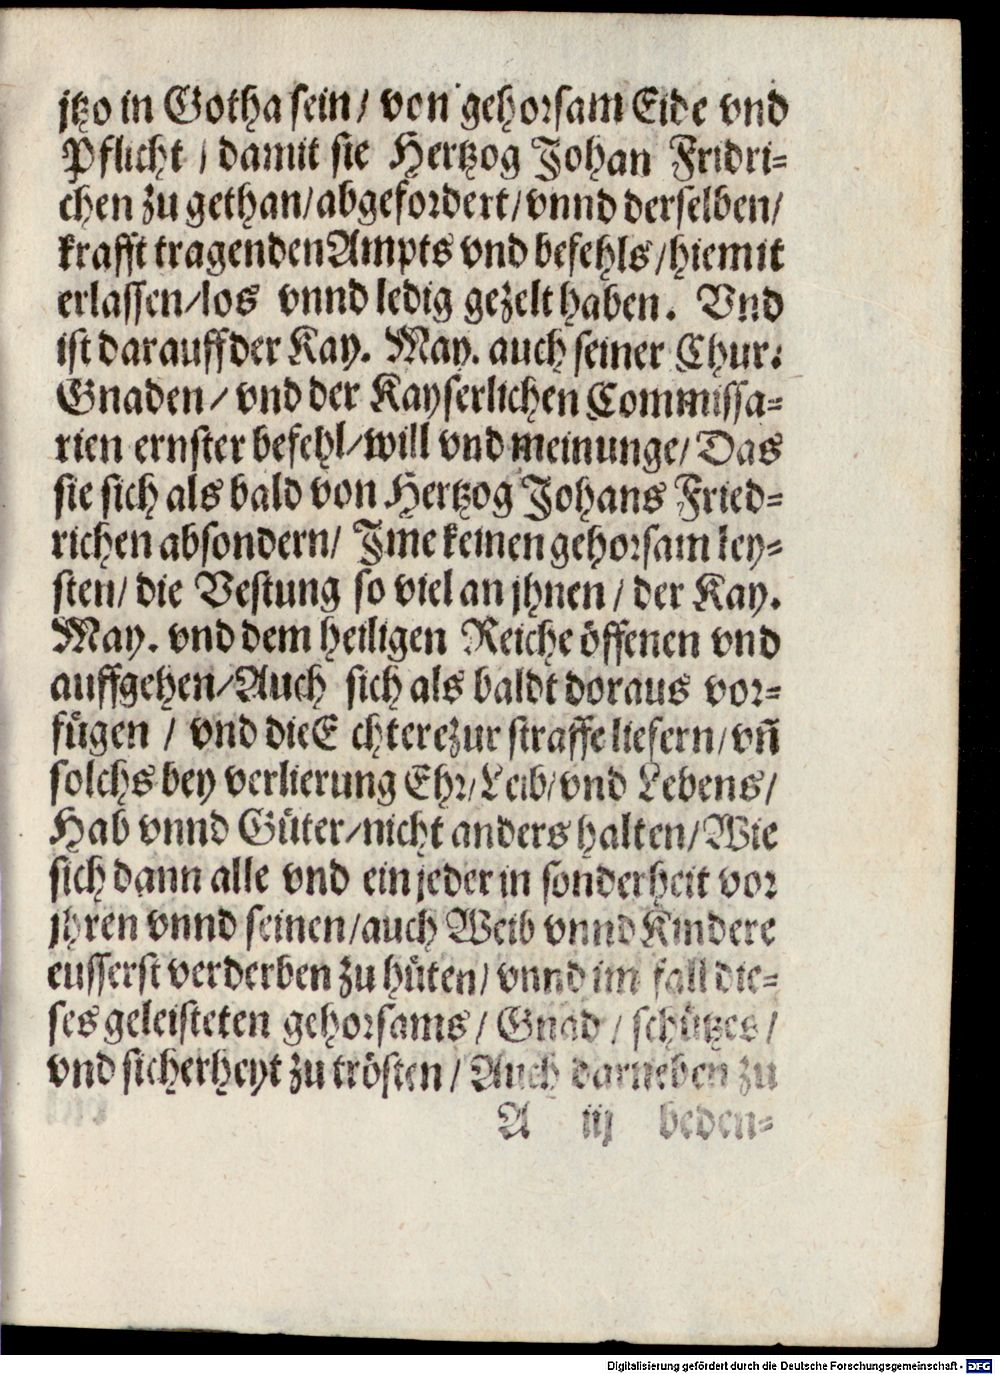 jtzo in Gotha sein / von gehorsam Eide vnd
Pflicht / damit sie Hertzog Johan Fridri-
chen zu gethan / abgefordert / vnnd derselben /
krafft tragenden Ampts vnd befehls / hiemit
erlassen / los vnnd ledig gezelt haben. Vnd
ist darauff der Kay. May. auch seiner Chur.
Gnaden / vnd der Kayserlichen Commissa-
rien ernster befehl / will vnd meinunge / Das
sie sich als bald von Hertzog Johans Fried-
richen absondern / Jme keinen gehorsam ley-
sten / die Vestung so viel an jhnen / der Kay.
May. vnd dem heiligen Reiche öffenen vnd
auffgehen / Auch sich als baldt doraus vor-
fügen / vnd die E chtere zur straffe liefern / vn̄
solchs bey verlierung Ehr / Leib / vnd Lebens /
Hab vnnd Güter / nicht anders halten / Wie
sich dann alle vnd ein jeder in sonderheit vor
jhren vnnd seinen / auch Weib vnnd Kindere
eusserst verderben zu hüten / vnnd im fall die-
ses geleisteten gehorsams / Gnad / schützes /
vnd sicherheyt zu trösten / Auch darneben zu
A iij beden-
Digitalisierung gefördert durch die Deutsche Forschungsgemeinschaft - DFG